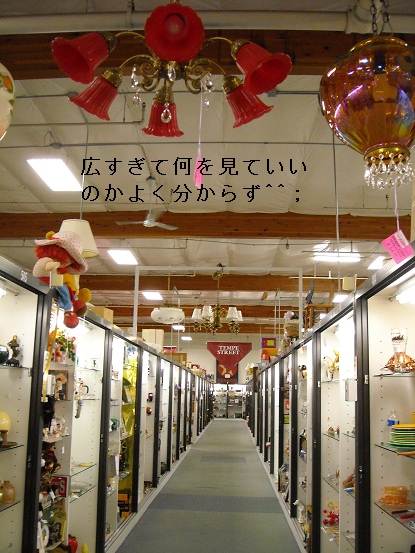 広すぎて何を見ていい
のかよく分からず^^；
TEMPE
STREET